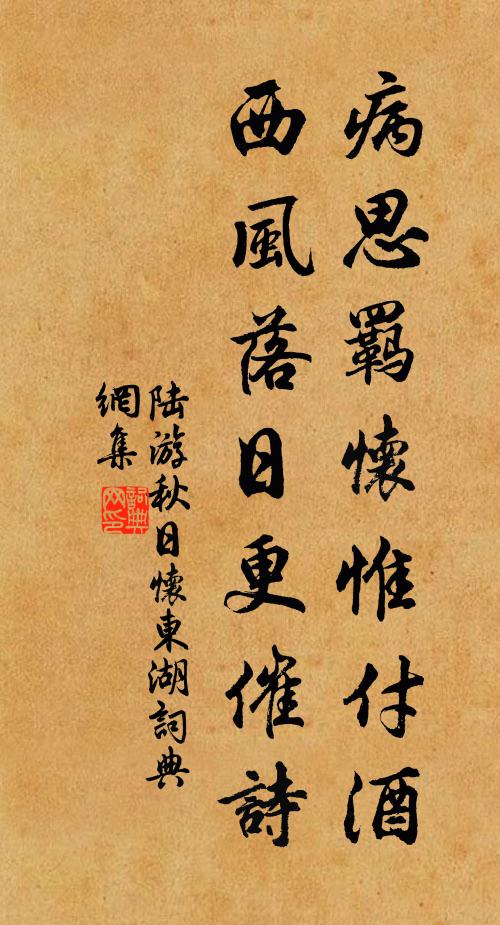 病思羈懷惟付酒
西風落日更催詩
陸游秋日懷東湖詞典
網集
詞典
网印